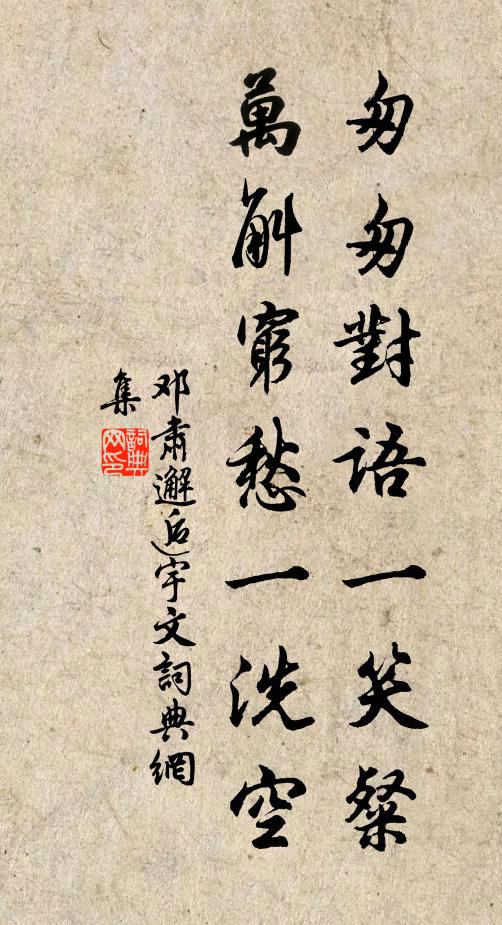 匆匆對語一笑粲
萬斛窮愁一洗空
邓肅邂逅宇文詞典網
集
詞典
网印